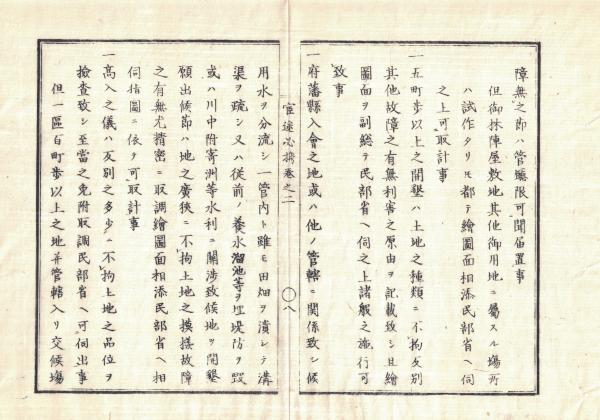 障無之節ハ管轄限可聞届置事
但御林陣屋敷地其他御用地ニ屬スル場所
ハ試作タリ𪜈都テ繪圖面相添民部省ヘ伺
之上可取計事
一五町歩以上之開墾ハ土地之種類ニ不拘反別
其他故障之有無利害之原由ヲ記載致シ且繪
圖面ヲ副總テ民部省ヘ伺之上諸般之施行可
致事
一府藩縣入會之地或ハ他ノ管轄ニ関係致シ候
官途必携巻之二
〇八
用水ヲ分流シ一管内ト雖モ田畑ヲ潰シテ溝
渠ヲ疏シ又ハ従前ノ養水溜池等ヲ埋堤防ヲ毀
或ハ川中附寄洲等水利ニ關渉致候地ヲ開墾
願出候節ハ地之廣狹ニ不拘土地之模様故障
之有無尤精密ニ取調繪圖面相添民部省ヘ相
伺指圖ニ依テ可取計事
一高入之儀ハ反別之多少ニ不拘土地之品位ヲ
檢査致シ至當之免附取調民部省ヘ可伺出事
但一區百町歩以上之地并管轄入リ交候場